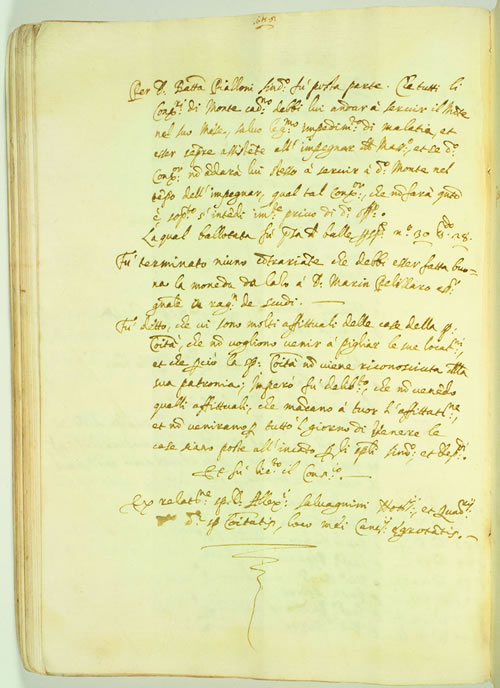 Per D. Batta Pialloni sind.o fù posta parte. Che tutti li
Cons.ri di Monte cad.no debbi lui andar à servir il Monte
nel suo Mese, salvo leg.mo impedim.to di malatia, et
esser sempre assistete all' impegnar et se d.o
Cons.ro nò adarà lui stesso à servir à d.o Monte nel
tepo dell' impegnar, qual tal Cons.ro, che nò farà quto
è sop.to s' intedi im.te privo di d.o off.o.
La qual ballotata fù à balle n.o 30
Fù terminato niuno cotrariate che debbi esser fatta buo-
na la moneda à D. Marin Pelillaro
in rag.e de scudi.
Fù ditto, che vi sono molti affittuali delle case della sp.
Coità, che nò vogliono venir à pigliar le sue locat.ni,
et che la sp. Coità nò viene riconosciuta
sua patronia; Imperò fù delib.to, che nò venedo
quelli affittuali, che macano à tuor l' affitati.ne,
et nò venirano tutto 'l giorno di Venere le
case siano poste all' incato p li sp.li sind.ci, et
Et fù lic.to il Cons.o.
Ex relat.ne sp. D. Alex.i Salvagnini Not.ij, et
d.ae sp Coitatis, loco mei Canc.ij egrotatis.